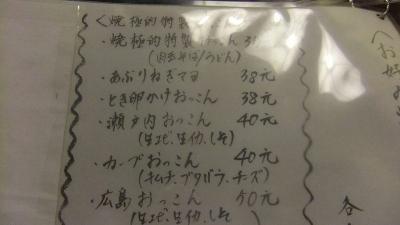 <焼極的特製
・焼極的特製
(肉玉そば/うどん)
・あぶりねぎマヨ 38元
・とき卵かけおっこん 38元
・瀬戸内おっこん 40元
(生エビ、生イカ、しそ)
・カープおっこん 40元
(キムチ、ブタバラ、チーズ)
・広島おっこん 50元
(生エビ、生イカ、しそ)